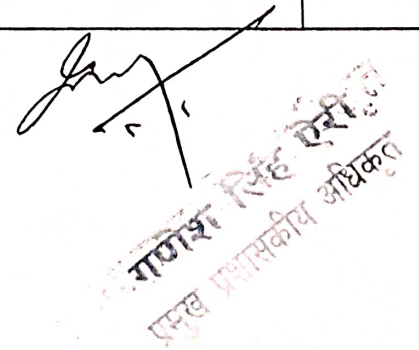 गणेश सिंह ऐरी
प्रमुख प्रशासकीय अधिकृत